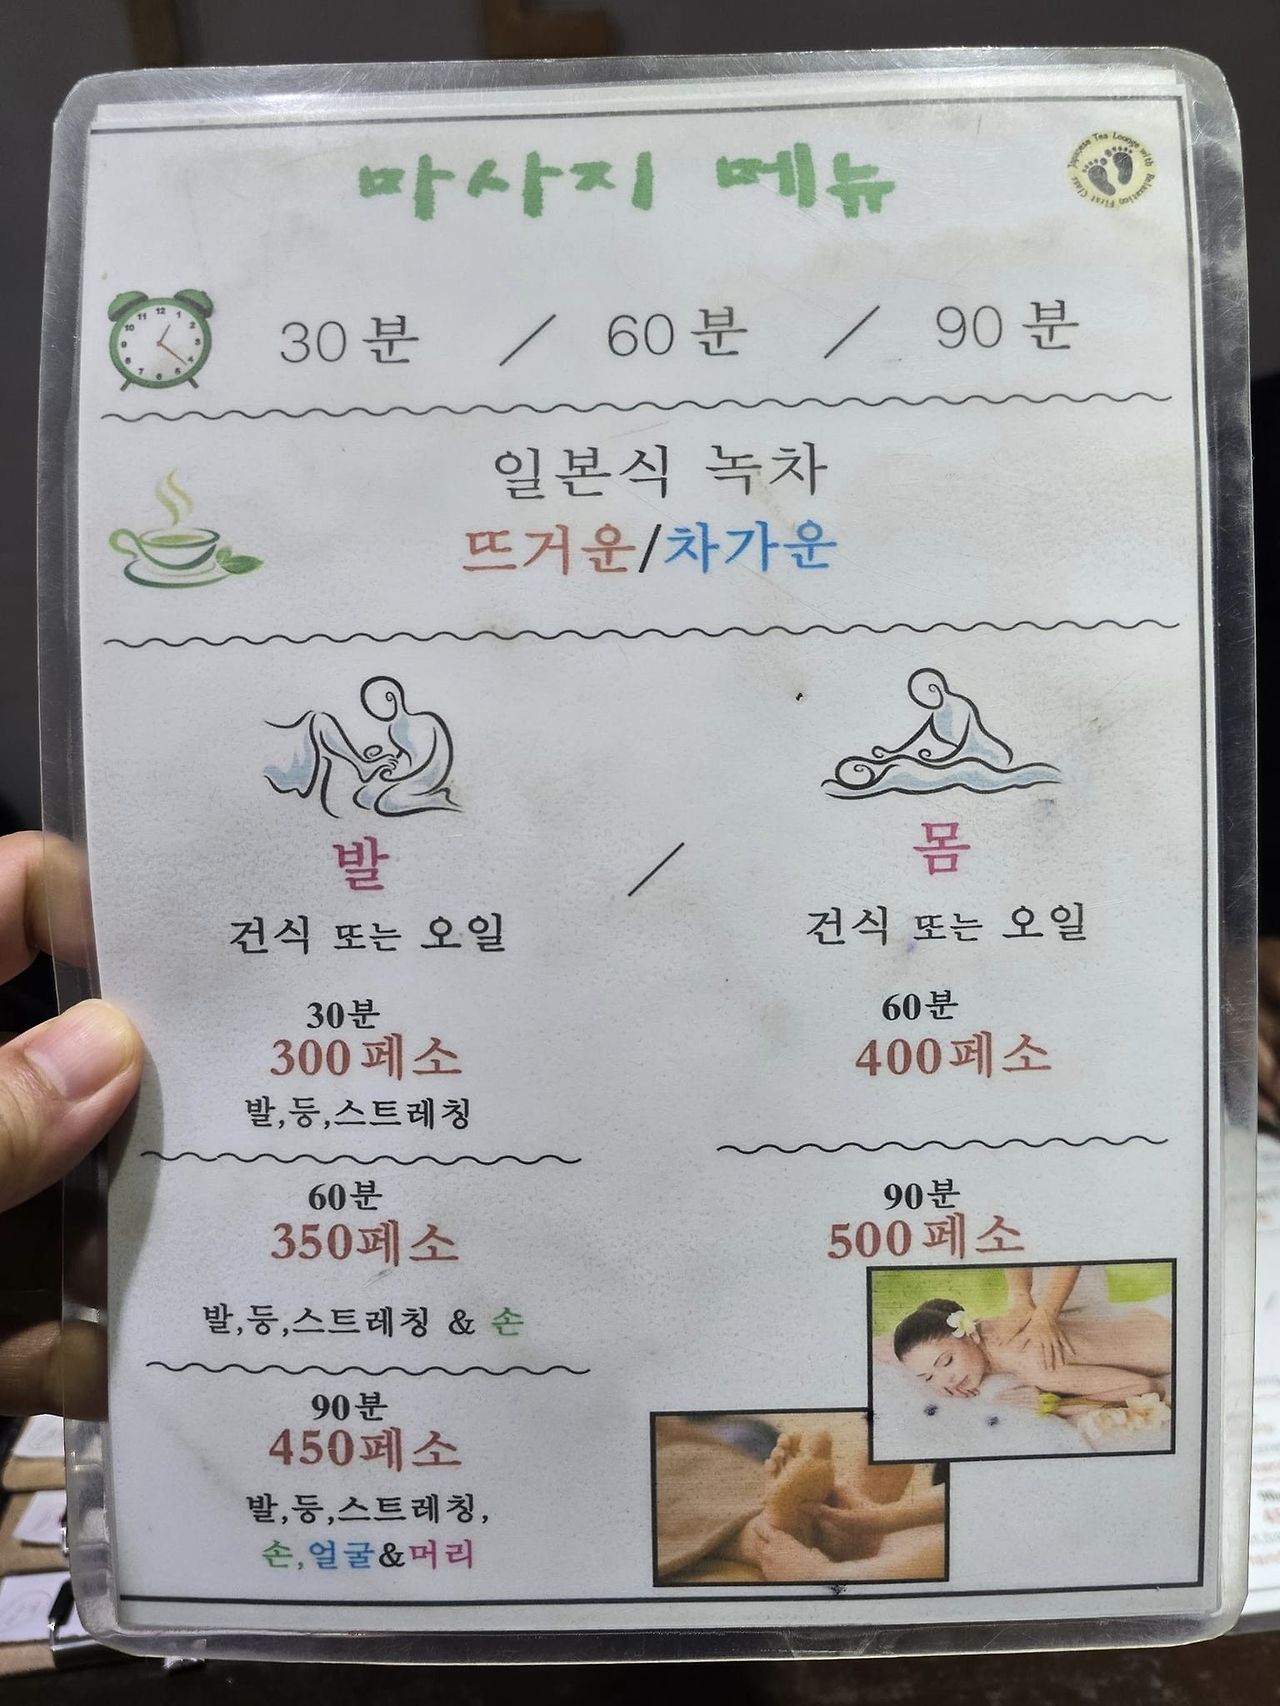 마사지 메뉴
Japanese Tea Lounge with Relaxation First Class
30분 / 60분 / 90분
일본식 녹차
뜨거운/차가운
발 / 몸
건식 또는 오일
30분
300페소
발,등,스트레칭
60분
350페소
발,등,스트레칭 & 손
90분
450페소
발,등,스트레칭,
손,얼굴&머리
건식 또는 오일
60분
400페소
90분
500페소